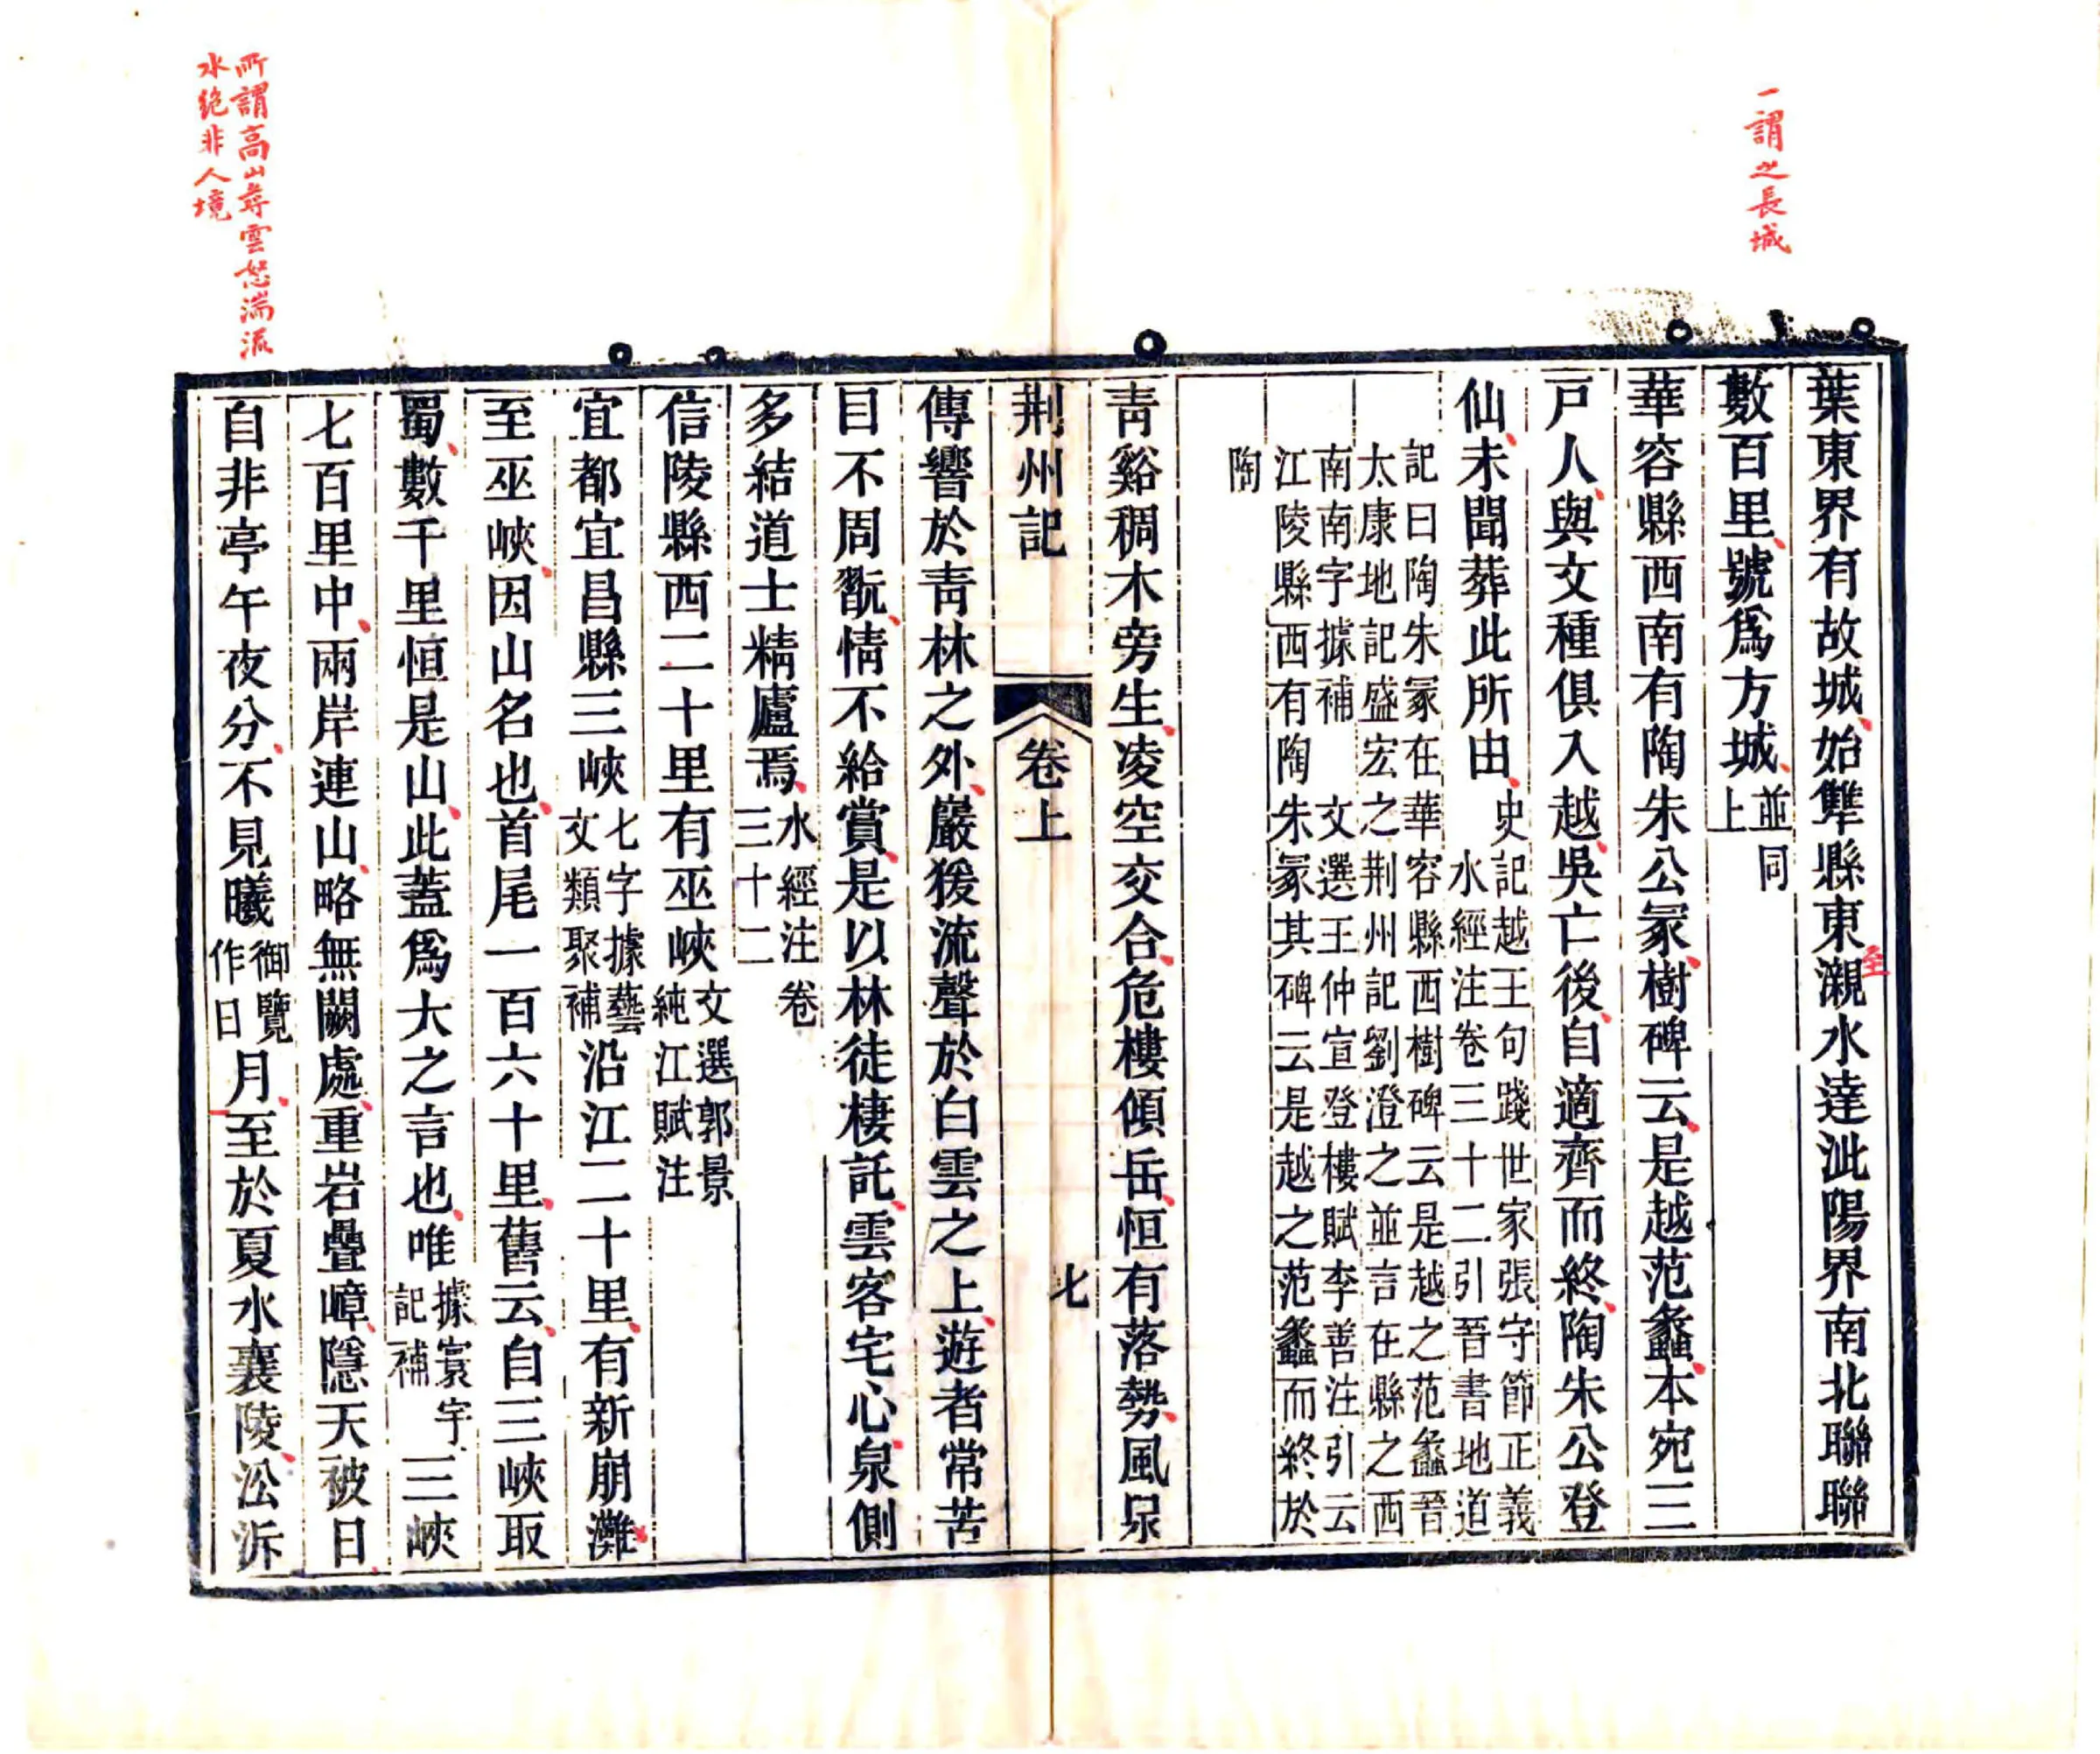 一謂之長城
葉東界有故城始犨縣東至瀙水達沘陽界南北聯聯
數百里號爲方城並同
上
華容縣西南有陶朱公冢樹碑云是越范蠡本宛三
戸人與文種俱入越吳亡後自適齊而終陶朱公登
仙未聞葬此所由史記越王句踐世家張守節正義
水經注卷三十二引晉書地道
記曰陶朱冢在華容縣西樹碑云是越之范蠡晉
太康地記盛宏之荆州記劉澄之並言在縣之西
南南字據補 文選王仲宣登樓賦李善注引云
江陵縣西有陶朱冢其碑云是越之范蠡而終於
陶
青谿稠木旁生凌空交合危樓傾岳恒有落勢風泉
荆州記 卷上 七
傳響於青林之外巖猨流聲於白雲之上遊者常苦
目不周翫情不給賞是以林徒棲託雲客宅心泉側
多結道士精廬焉水經注卷
三十二
信陵縣西二十里有巫峽文選郭景
純江賦注
宜都宜昌縣三峽七字據藝
文類聚補沿江二十里有新崩灘
至巫峽因山名也首尾一百六十里舊云自三峽取
蜀數千里恒是山此蓋爲大之言也唯據寰宇
記補三峽
七百里中兩岸連山略無闕處重岩疊嶂隱天被日
自非亭午夜分不見曦御覽
作日月至於夏水襄陵㳂泝
所謂高山尋雲怒湍流
水絶非人境